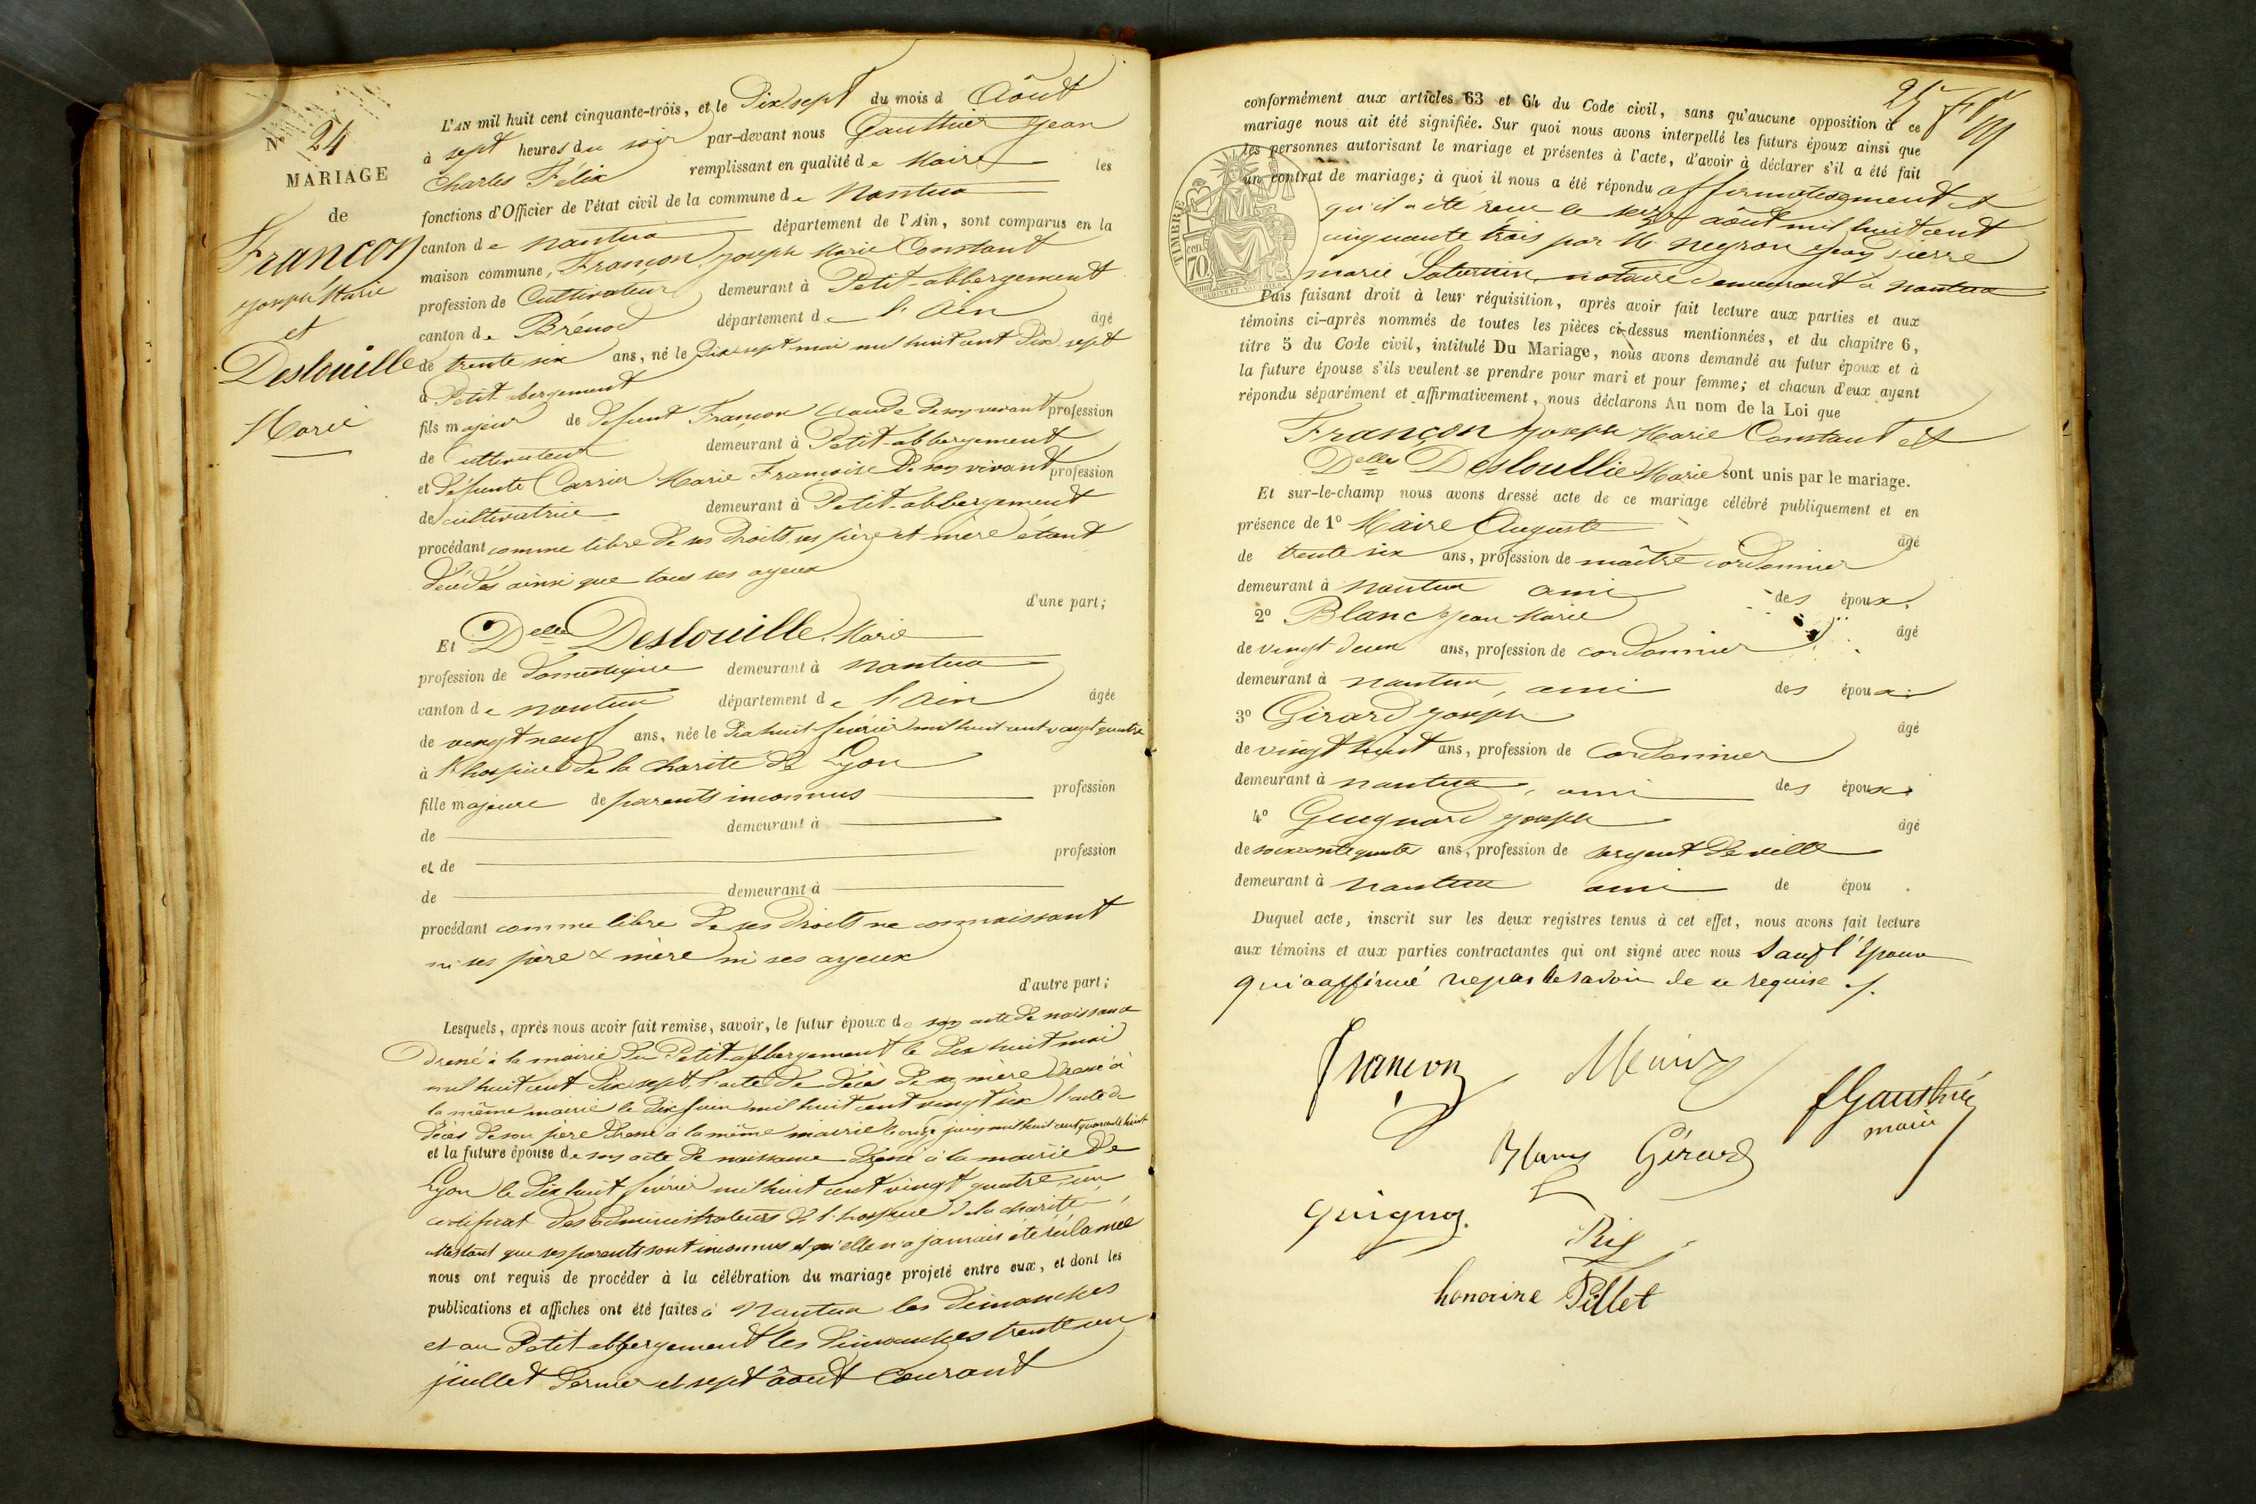 N° 24
MARIAGE
de
Françon
Joseph Marie
et
Deslouille
Marie
L'AN mil huit cent cinquante-trois, et le Dix sept du mois d Août
à sept heures du soir par-devant nous Gauthier Jean
Charles Félix remplissant en qualité de Maire les
fonctions d'Officier de l'état civil de la commune de Nantua
canton de Nantua département de l'Ain, sont comparus en la
maison commune, Françon Joseph Marie Constant
profession de Cultivateur demeurant à Petit-abbergement
canton de Brénod département de l'Ain âgé
de trente six ans, né le Dix sept mai mil huit cent Dix sept
à Petit abergement
fils majeur de défunt Françon Claude de son vivant profession
de Cultivateur demeurant à Petit-abbergement
et Défunte Carrier Marie Françoise de son vivant profession
de cultivatrice demeurant à Petit-abbergement
procédant comme libre de ses droits, ses père et mère étant
décédés ainsi que tous ses ayeux
d'une part;
Et Delle Deslouille Marie
profession de domestique demeurant à Nantua
canton de Nantua département de l'Ain âgée
de vingt neuf ans, née le Dix huit février mil huit cent vingt quatre
à l'hospice de la charité de Lyon
fille majeure de parents inconnus profession
de demeurant à
et de profession
de demeurant à
procédant comme libre de ses droits ne connaissant
ni ses père & mère ni ses ayeux
d'autre part;
Lesquels, après nous avoir fait remise, savoir, le futur époux de son acte de naissance
Dressé à la mairie du Petit-abbergement le dix huit mai
mil huit cent dix sept, l'acte de décès de sa mère dressé à
la même mairie le dix juin mil huit cent vingt six l'acte de
décès de son père dressé à la même mairie le onze juin mil huit cent quarante huit
et la future épouse de son acte de naissance dressé à la mairie de
Lyon le dix huit février mil huit cent vingt quatre, un
certificat des administrateurs de l'hospice de la charité
attestant que ses parents sont inconnus et qu'elle n'a jamais été réclamée
nous ont requis de procéder à la célébration du mariage projeté entre eux, et dont les
publications et affiches ont été faites à Nantua les dimanches
et au Petit-abbergement les dimanches trente un
juillet dernier et sept août courant
25
conformément aux articles 63 et 64 du Code civil, sans qu'aucune opposition à ce
mariage nous ait été signifiée. Sur quoi nous avons interpellé les futurs époux ainsi que
les personnes autorisant le mariage et présentes à l'acte, d'avoir à déclarer s'il a été fait
un contrat de mariage; à quoi il nous a été répondu affirmativement et
qu'il a été reçu le seize août mil huit cent
cinquante trois par Me Negron Jean Pierre
Marie Saturnin notaire demeurant à Nantua
TIMBRE
70 cen
Puis faisant droit à leur réquisition, après avoir fait lecture aux parties et aux
témoins ci-après nommés de toutes les pièces ci-dessus mentionnées, et du chapitre 6,
titre 5 du Code civil, intitulé Du Mariage, nous avons demandé au futur époux et à
la future épouse s'ils veulent se prendre pour mari et pour femme; et chacun d'eux ayant
répondu séparément et affirmativement, nous déclarons Au nom de la Loi que
Françon Joseph Marie Constant et
Delle Desloullie Marie sont unis par le mariage.
Et sur-le-champ nous avons dressé acte de ce mariage célébré publiquement et en
présence de 1° Maire Auguste âgé
de trente six ans, profession de maître cordonnier
demeurant à Nantua ami des époux.
2° Blanc Jean Marie âgé
de vingt deux ans, profession de cordonnier
demeurant à Nantua, ami des époux.
3° Girard Joseph âgé
de vingt huit ans, profession de Cordonnier
demeurant à Nantua, ami des époux.
4° Guignard Joseph âgé
de soixante quatre ans, profession de sergent de ville
demeurant à Nantua ami de épou .
Duquel acte, inscrit sur les deux registres tenus à cet effet, nous avons fait lecture
aux témoins et aux parties contractantes qui ont signé avec nous Sauf l'Epouse
qui a affirmé ne pas le savoir de ce requise /.
françon
FGauthier
maire
Blanc Girard
Guignar
Rig
honorine Pillet